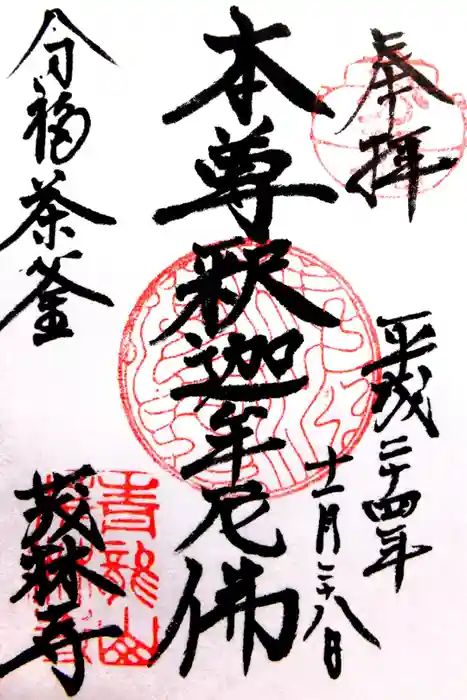 奉拝
平成二十四年
十一月二十八日
本尊釈迦牟尼佛
分福茶釜
茂林寺
青龍山